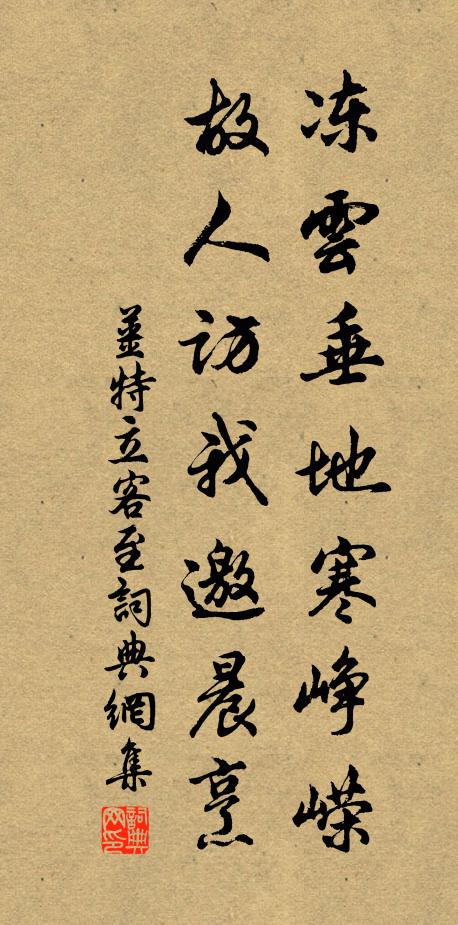 冻雲垂地寒峥嵘
故人訪我邀晨烹
薑特立客至詞典網集
詞典网印